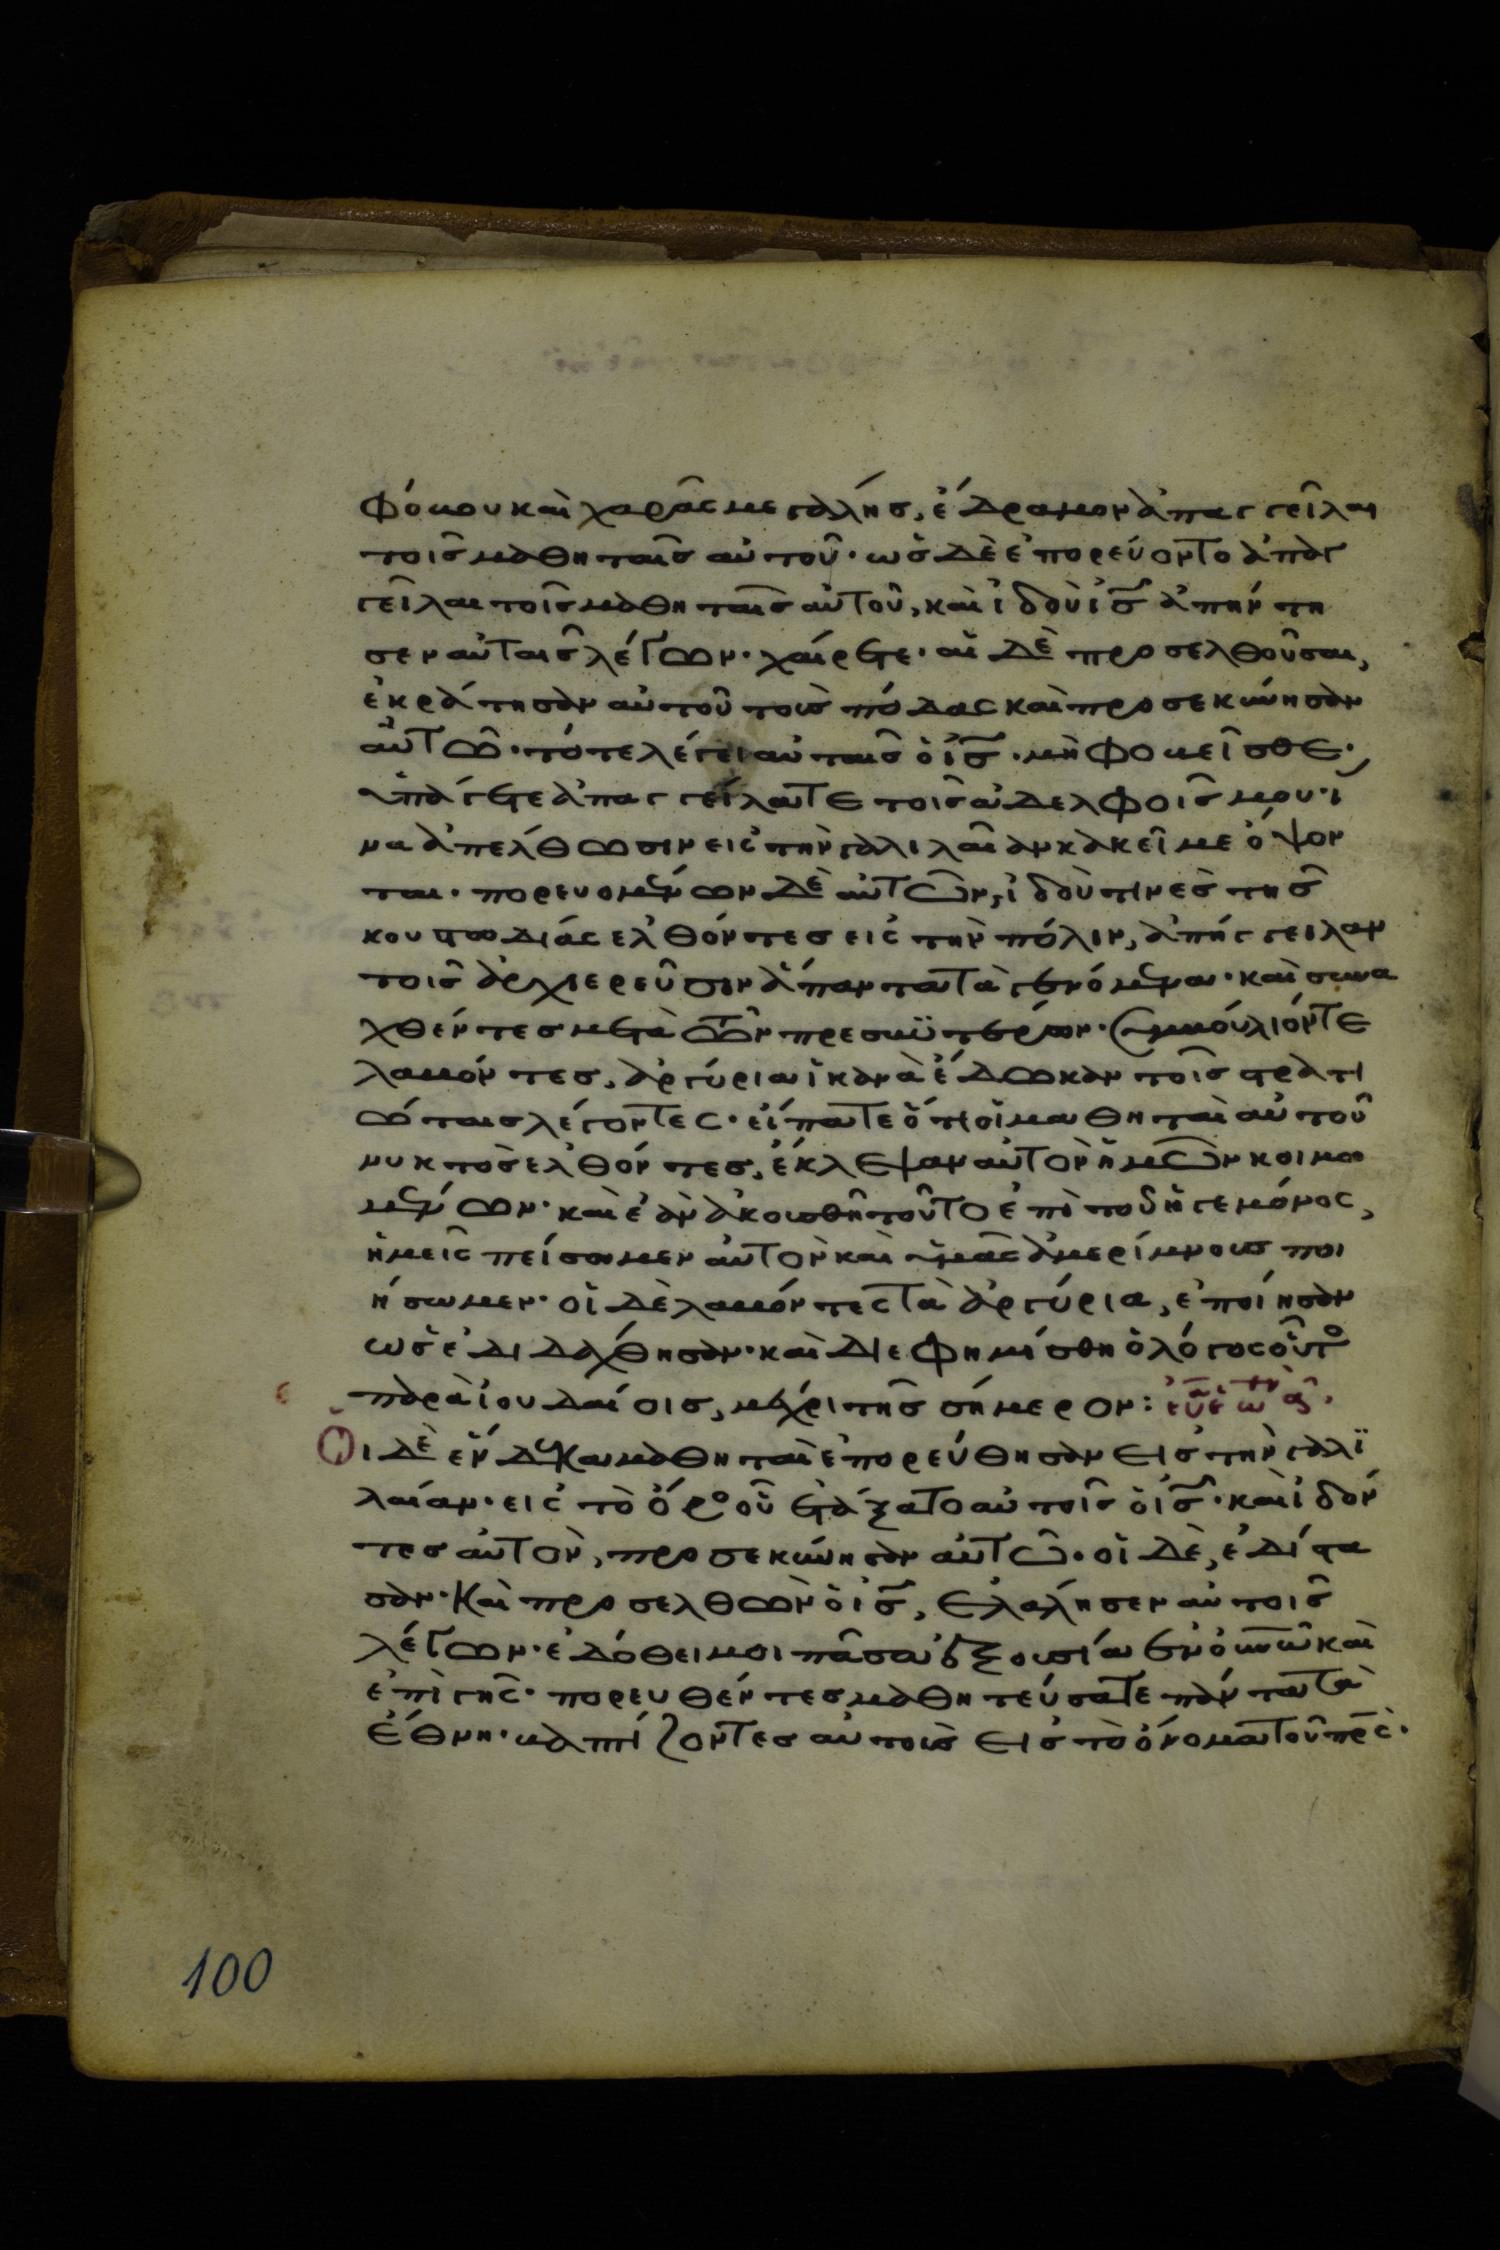 φόβου καὶ χαρᾶς μεγάλης, ἔδραμον ἀπαγγεῖλαι
τοῖς μαθηταῖς αὐτοῦ· ὡς δὲ ἐπορεύοντο ἀπαγ
γεῖλαι τοῖς μαθηταῖς αὐτοῦ, καὶ ἰδοὺ ις ἀπήντη
σεν αὐταῖς λέγων· χαίρετε· αἱ δὲ προσελθοῦσαι,
ἐκράτησαν αὐτοῦ τοὺς πόδας καὶ προσεκύνησαν
αὐτῶ· τότε λέγει αὐταῖς ὁ ις· μὴ φοβεῖσθε·
ὑπάγετε ἀπαγγείλατε τοῖς ἀδελφοῖς μου· ἵ
να ἀπέλθωσιν εἰς τὴν γαλιλαίαν κἀκεῖ με ὄψον
ται· πορευομένων δὲ αὐτῶν, ἰδού τινες τῆς
κουστωδίας ελθόντες εις την πόλιν, ἀπήγγειλαν
τοῖς ἀρχιερεῦσιν ἅπαντα τὰ γενόμενα· καὶ συνα
χθέντες μετὰ τῶν πρεσβϋτέρων· συμβούλιόν τε
λαβόντες, ἀργύρια ἱκανὰ ἔδωκαν τοῖς στρατι
ώταις λέγοντες· εἴπατε ὅτι οἱ μαθηταὶ αὐτοῦ
νυκτὸς ελθόντες, ἔκλεψαν αὐτὸν ἡμῶν κοιμω
μένων· καὶ ἐὰν ἀκουσθῆ τοῦτο ἐπὶ τοῦ ἡγεμόνος,
ἡμεῖς πείσωμεν αὐτὸν καὶ ὑμᾶς ἀμερίμνους ποι
ήσωμεν· οἱ δὲ λαβόντες τὰ ἀργύρια, ἐποίησαν
ὡς ἐδιδάχθησαν· καὶ διεφημίσθη ὁ λόγος οὗτο
παρὰ ἰουδαίοις, μέχρι τῆς σήμερον:
Οι δὲ ἕνδεκα μαθηταὶ ἐπορεύθησαν εἰς τὴν γαλϊ
λαίαν· εἰς τὸ ὄρο οὗ ἐτάξατο αὐτοῖς ὁ ις· καὶ ἰδόν
τες αὐτὸν, προσεκύνησαν αὐτῶ· οἱ δὲ, ἐδίστα
σαν· Καὶ προσελθὼν ὁ ις, ἐλάλησεν αὐτοῖς
λέγων· ἐδόθει μοι πᾶσα ἐξουσία ἐν ουνω καὶ
ἐπὶ γῆς· πορευθέντες μαθητεύσατε πάντα τὰ
ἔθνη· βαπτίζοντες αὐτοὺς εἰς τὸ ὄνομα τοῦ πρς·
100